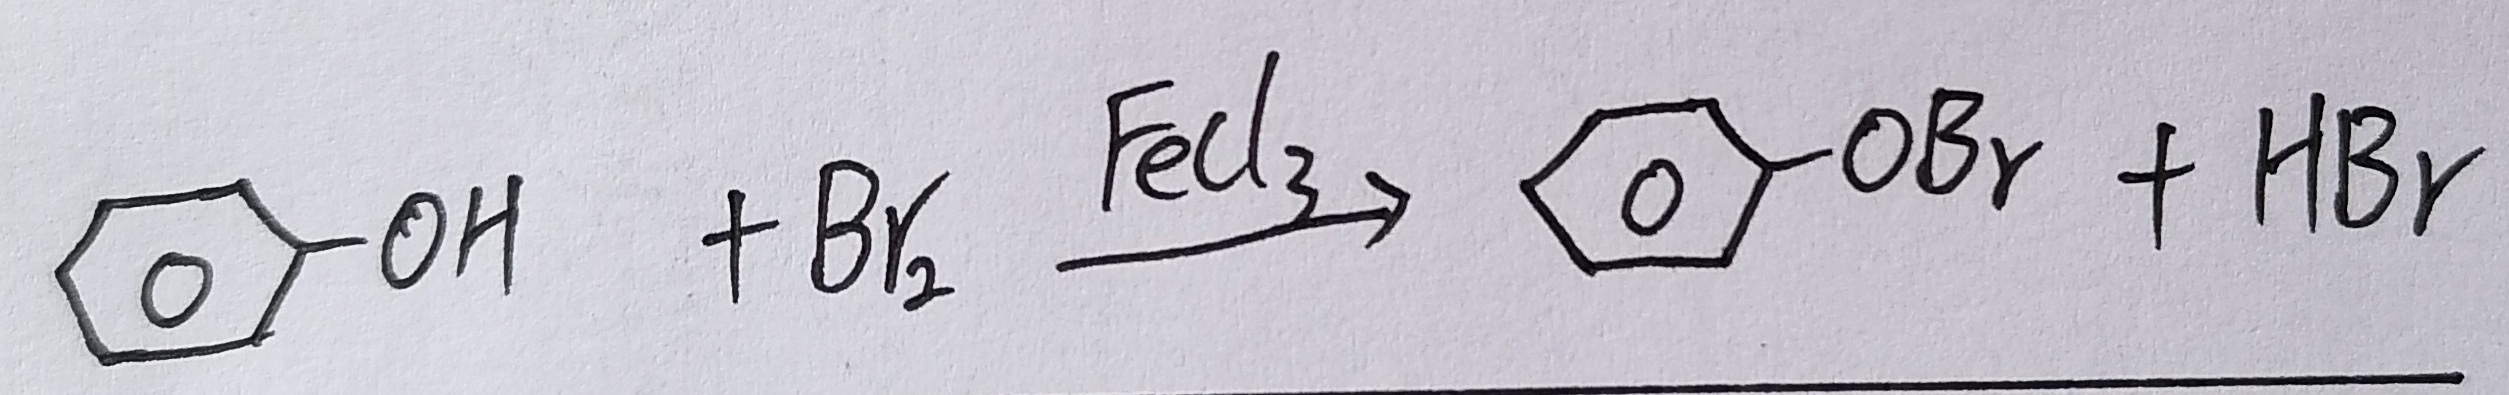 OH + Br₂ FeCl₃ → OBr + HBr